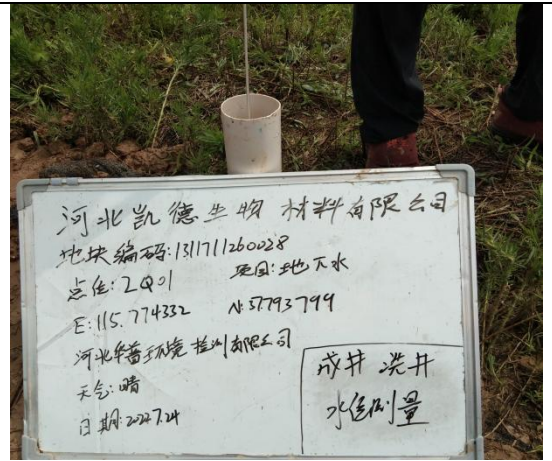 河北凯德生物材料有限公司
地块编码:1311711260028
点位:2Q01 项目:地下水
E:115.774332 N:37.793799
河北华普环境检测有限公司
天气:晴
日期:2022.7.24
成井 洗井
水位测量